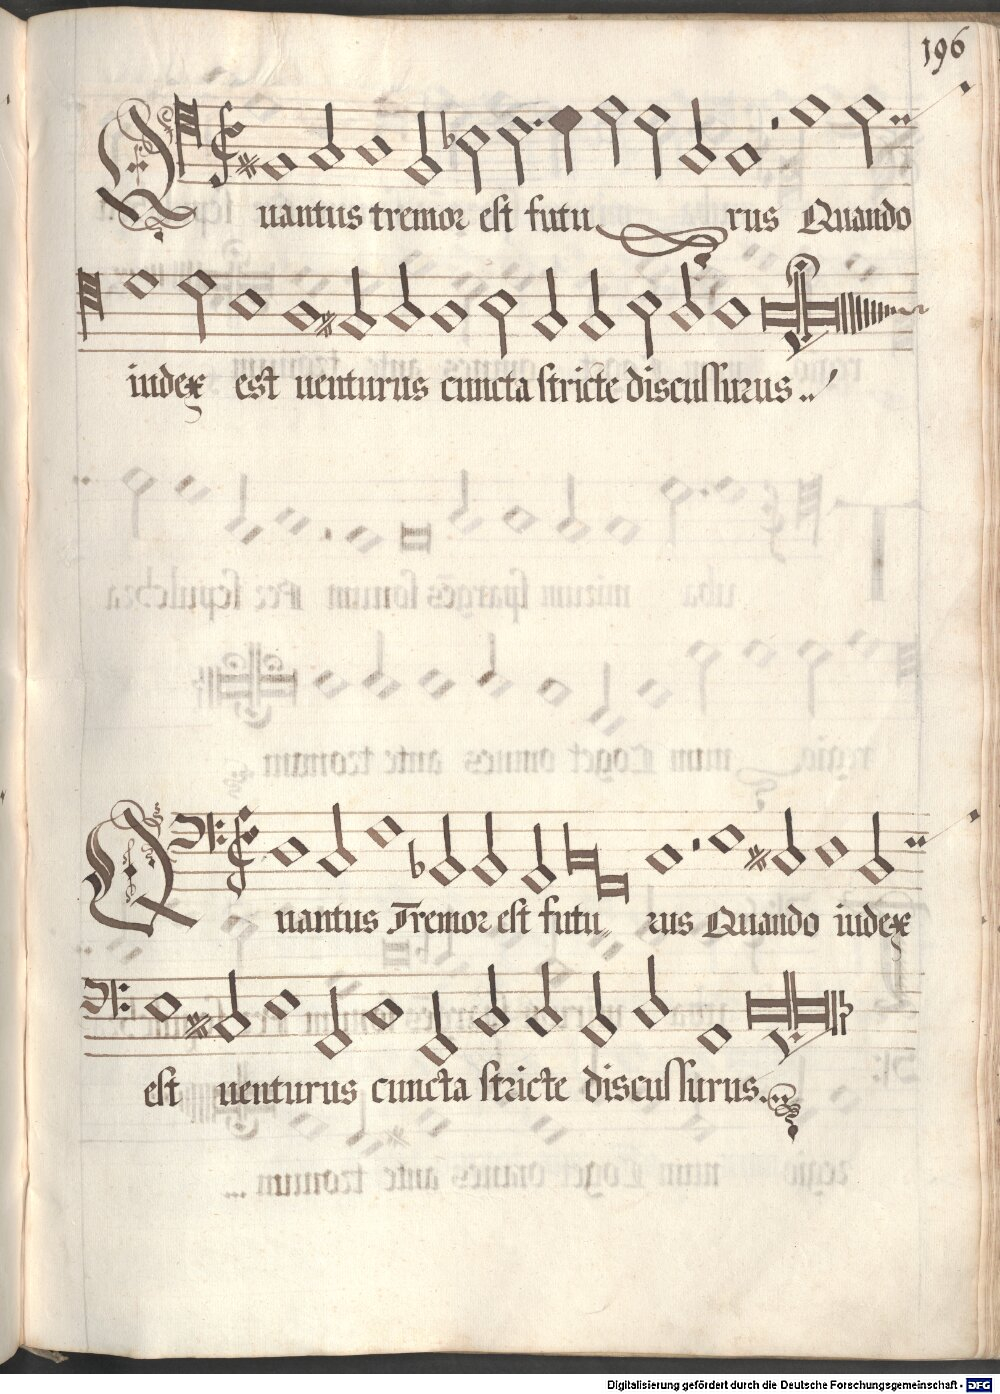 196
Quantus tremor est futurus Quando
iudex est uenturus cuncta stricte discussurus
Quantus Tremor est futurus Quando iudex
est uenturus cuncta stricte discussurus
Digitalisierung gefördert durch die Deutsche Forschungsgemeinschaft - DFG